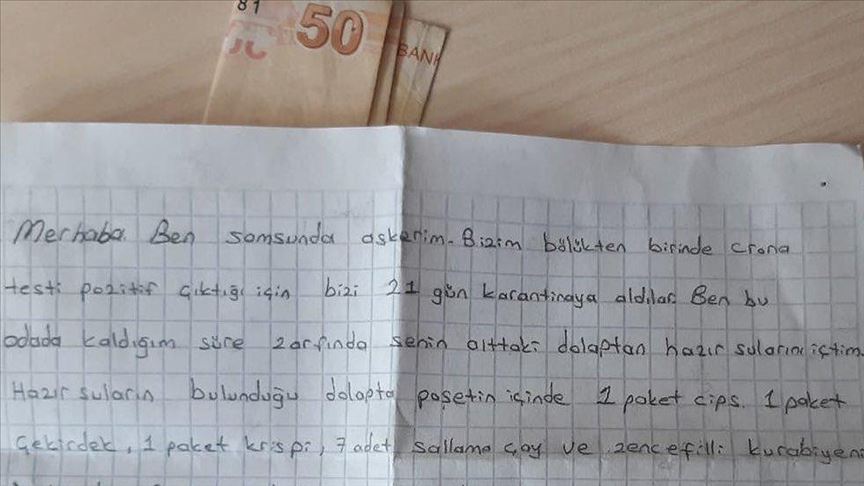 81
50
BANK
Merhaba. Ben samsunda askerim. Bizim bölükten birinde crona
testi pozitif çıktığı için bizi 21 gün karantinaya aldılar. Ben bu
odada kaldığım süre zarfında senin alttaki dolaptan hazır sularını içtim.
Hazır suların bulunduğu dolapta poşetin içinde 1 paket cips. 1 paket
çekirdek, 1 paket krispi, 7 adet sallama çay ve zencefilli kurabiyeni